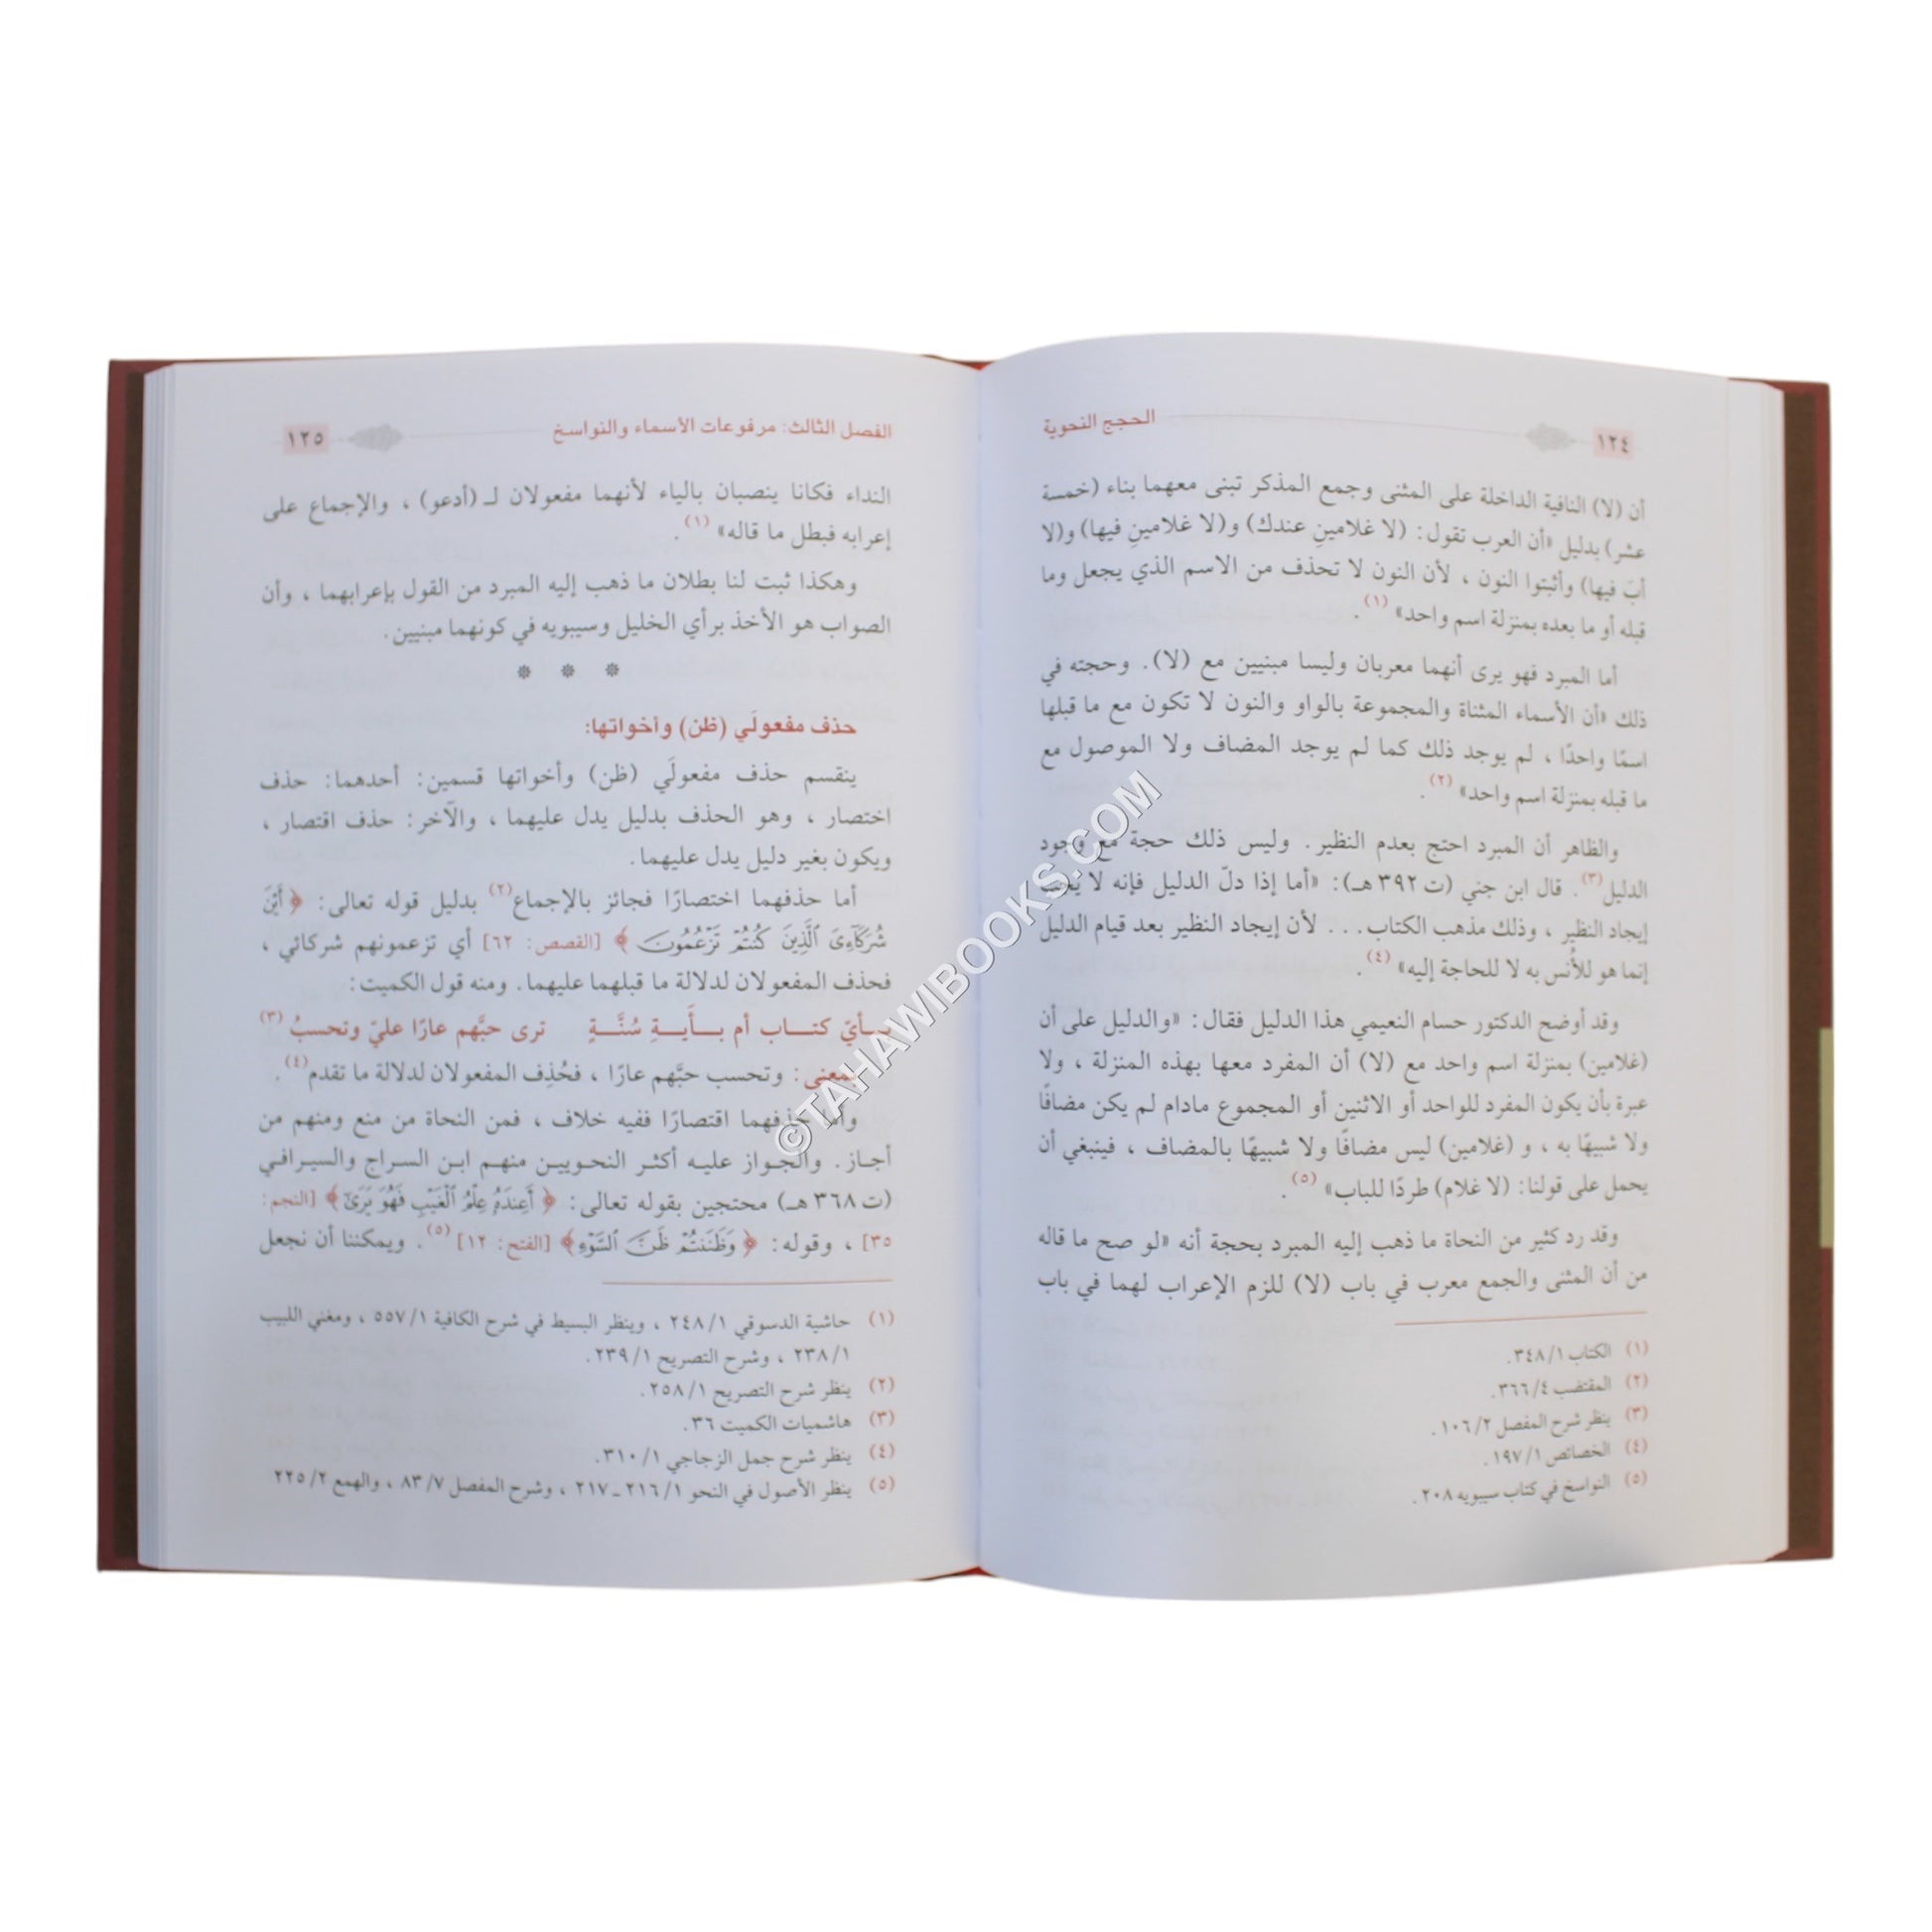 ١٢٤ الحجج النحوية
أن (لا) النافية الداخلة على المثنى وجمع المذكر تبنى معهما بناء (خمسة
عشر) بدليل «أن العرب تقول: (لا غلامينِ عندك) و(لا غلامينِ فيها) و(لا
أبَ فيها) وأثبتوا النون ، لأن النون لا تحذف من الاسم الذي يجعل وما
قبله أو ما بعده بمنزلة اسم واحد» (١) .
أما المبرد فهو يرى أنهما معربان وليسا مبنيين مع (لا). وحجته في
ذلك «أن الأسماء المثناة والمجموعة بالواو والنون لا تكون مع ما قبلها
اسمًا واحدًا ، لم يوجد ذلك كما لم يوجد المضاف ولا الموصول مع
ما قبله بمنزلة اسم واحد» (٢) .
والظاهر أن المبرد احتج بعدم النظير. وليس ذلك حجة مع وجود
الدليل (٣). قال ابن جني (ت ٣٩٢ هـ): «أما إذا دلّ الدليل فإنه لا يجب
إيجاد النظير ، وذلك مذهب الكتاب... لأن إيجاد النظير بعد قيام الدليل
إنما هو للأُنس به لا للحاجة إليه» (٤) .
وقد أوضح الدكتور حسام النعيمي هذا الدليل فقال: «والدليل على أن
(غلامين) بمنزلة اسم واحد مع (لا) أن المفرد معها بهذه المنزلة ، ولا
عبرة بأن يكون المفرد للواحد أو الاثنين أو المجموع مادام لم يكن مضافًا
ولا شبيهًا به ، و (غلامين) ليس مضافًا ولا شبيهًا بالمضاف ، فينبغي أن
يحمل على قولنا: (لا غلام) طردًا للباب» (٥) .
وقد رد كثير من النحاة ما ذهب إليه المبرد بحجة أنه «لو صح ما قاله
من أن المثنى والجمع معرب في باب (لا) للزم الإعراب لهما في باب
(١) الكتاب ٣٤٨/١.
(٢) المقتضب ٣٦٦/٤.
(٣) ينظر شرح المفصل ١٠٦/٢.
(٤) الخصائص ١٩٧/١.
(٥) النواسخ في كتاب سيبويه ٢٠٨.
الفصل الثالث: مرفوعات الأسماء والنواسخ ١٢٥
النداء فكانا ينصبان بالياء لأنهما مفعولان لـ (أدعو) ، والإجماع على
إعرابه فبطل ما قاله» (١) .
وهكذا ثبت لنا بطلان ما ذهب إليه المبرد من القول بإعرابهما ، وأن
الصواب هو الأخذ برأي الخليل وسيبويه في كونهما مبنيين.
* * *
حذف مفعولَي (ظن) وأخواتها:
ينقسم حذف مفعولَي (ظن) وأخواتها قسمين: أحدهما: حذف
اختصار ، وهو الحذف بدليل يدل عليهما ، والآخر: حذف اقتصار ،
ويكون بغير دليل يدل عليهما.
أما حذفهما اختصارًا فجائز بالإجماع (٢) بدليل قوله تعالى: ﴿أَيْنَ
شُرَكَآءِىَ ٱلَّذِينَ كُنتُمْ تَزْعُمُونَ﴾ [القصص: ٦٢] أي تزعمونهم شركائي ،
فحذف المفعولان لدلالة ما قبلهما عليهما. ومنه قول الكميت:
بـأيّ كتـاب أم بـأَيـةِ سُنَّـةٍ ترى حبَّهم عارًا عليّ وتحسبُ (٣)
بمعنى: وتحسب حبَّهم عارًا ، فحُذِف المفعولان لدلالة ما تقدم (٤) .
وأما حذفهما اقتصارًا ففيه خلاف ، فمن النحاة من منع ومنهم من
أجاز. والجواز عليه أكثر النحويين منهم ابن السراج والسيرافي
(ت ٣٦٨ هـ) محتجين بقوله تعالى: ﴿أَعِندَهُۥ عِلْمُ ٱلْغَيْبِ فَهُوَ يَرَىٰٓ﴾ [النجم:
٣٥] ، وقوله: ﴿وَظَنَنتُمْ ظَنَّ ٱلسَّوْءِ﴾ [الفتح: ١٢] (٥) . ويمكننا أن نجعل
(١) حاشية الدسوقي ٢٤٨/١ ، وينظر البسيط في شرح الكافية ٥٥٧/١ ، ومغني اللبيب
٢٣٨/١ ، وشرح التصريح ٢٣٩/١.
(٢) ينظر شرح التصريح ٢٥٨/١.
(٣) هاشميات الكميت ٣٦.
(٤) ينظر شرح جمل الزجاجي ٣١٠/١.
(٥) ينظر الأصول في النحو ٢١٦/١ـ٢١٧ ، وشرح المفصل ٨٣/٧ ، والهمع ٢٢٥/٢
©TAHAWIBOOKS.COM